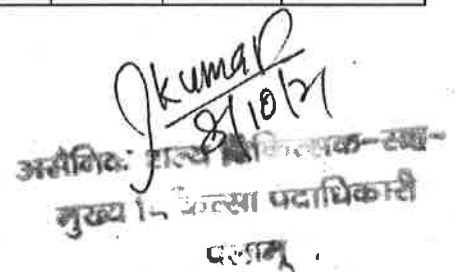 Jkumar
8/10/21
असैनिक शल्य चिकित्सक-सह-
मुख्य चिकित्सा पदाधिकारी
पलामू .